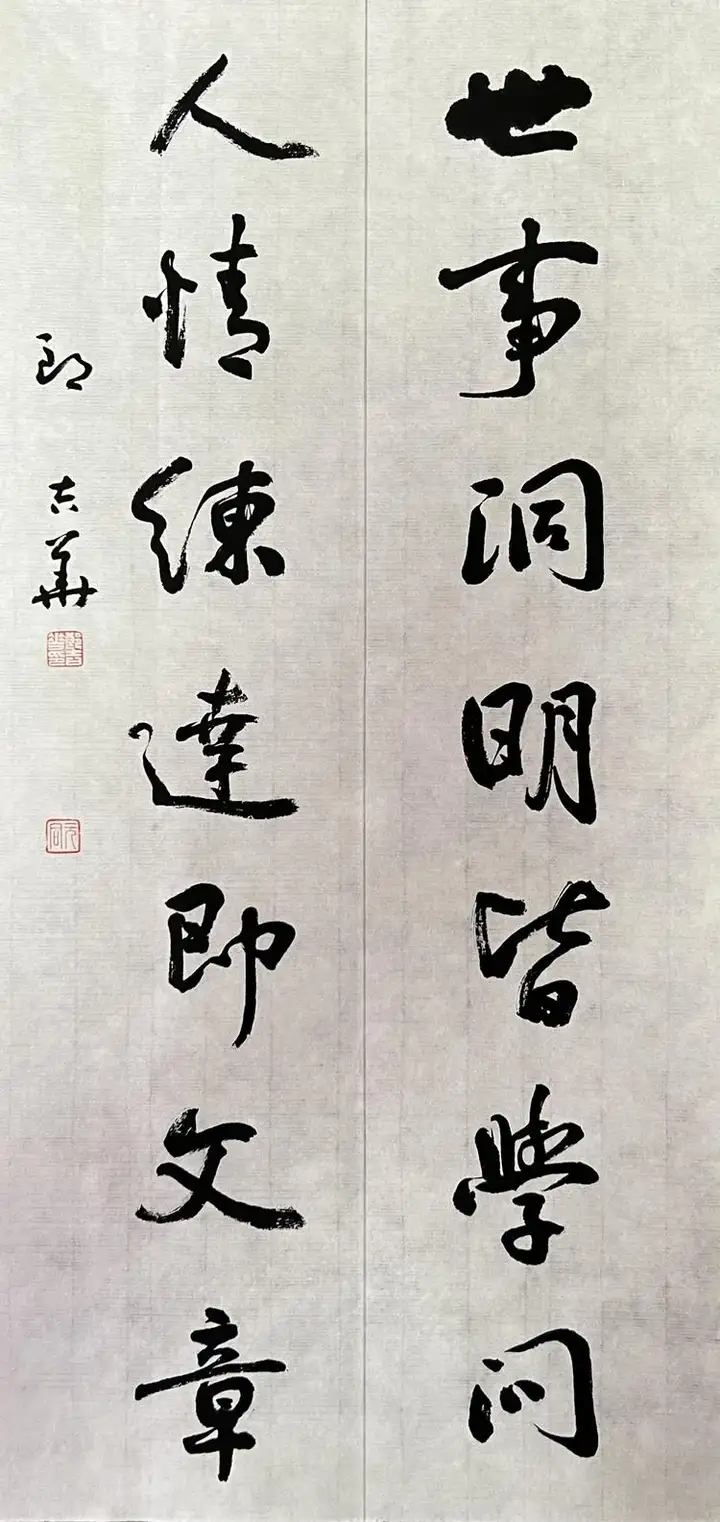 世事洞明皆學问
人情練達即文章
吉華